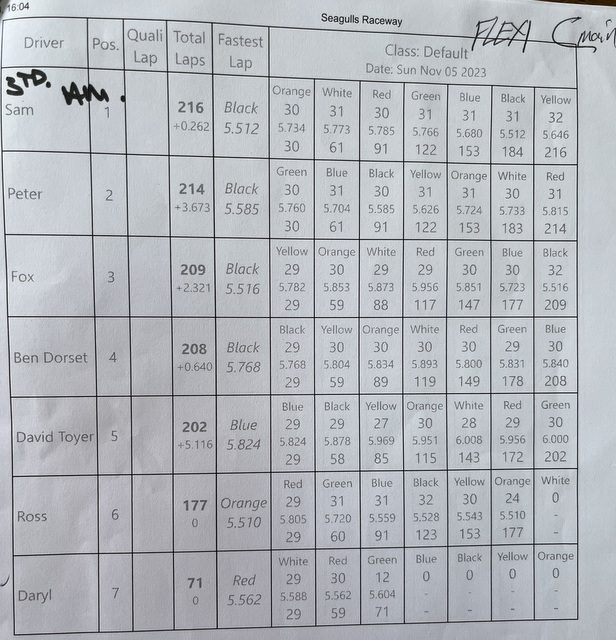 16:04
Seagulls Raceway
FLEXI C main
Driver Pos. Quali Lap Total Laps Fastest Lap Class: Default
Date: Sun Nov 05 2023
3TD.
Orange White Red Green Blue Black Yellow
Sam 1 216 Black 30 31 30 31 31 31 32
+0.262 5.512 5.734 5.773 5.785 5.766 5.680 5.512 5.646
30 61 91 122 153 184 216
Green Blue Black Yellow Orange White Red
Peter 2 214 Black 30 31 30 31 31 30 31
+3.673 5.585 5.760 5.704 5.585 5.626 5.724 5.733 5.815
30 61 91 122 153 183 214
Yellow Orange White Red Green Blue Black
Fox 3 209 Black 29 30 29 29 30 30 32
+2.321 5.516 5.782 5.853 5.873 5.956 5.851 5.723 5.516
29 59 88 117 147 177 209
Black Yellow Orange White Red Green Blue
Ben Dorset 4 208 Black 29 30 30 30 30 29 30
+0.640 5.768 5.768 5.804 5.834 5.893 5.800 5.831 5.840
29 59 89 119 149 178 208
Blue Black Yellow Orange White Red Green
David Toyer 5 202 Blue 29 29 27 30 28 29 30
+5.116 5.824 5.824 5.878 5.969 5.951 6.008 5.956 6.000
29 58 85 115 143 172 202
Red Green Blue Black Yellow Orange White
Ross 6 177 Orange 29 31 31 32 30 24 0
0 5.510 5.805 5.720 5.559 5.528 5.543 5.510 -
29 60 91 123 153 177 -
White Red Green Blue Black Yellow Orange
Daryl 7 71 Red 29 30 12 0 0 0 0
0 5.562 5.588 5.562 5.604 - - - -
29 59 71 - - - -